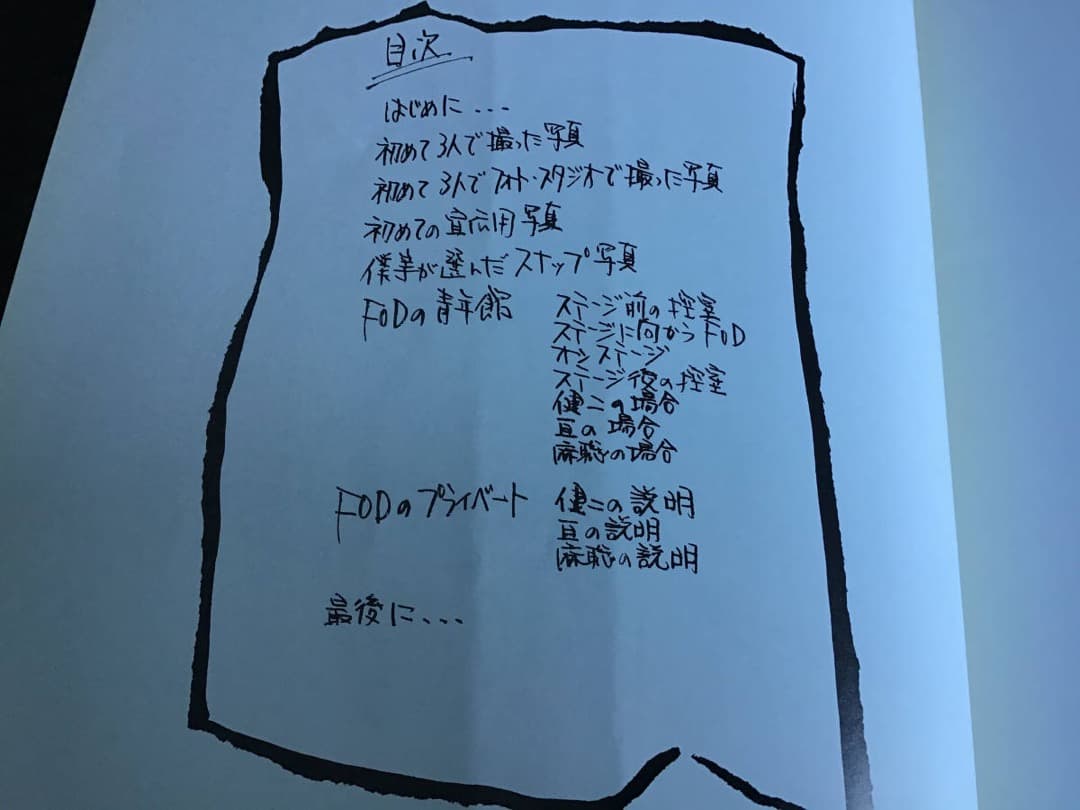 目次
はじめに...
初めて3人で撮った写真
初めて3人でフォト・スタジオで撮った写真
初めての宣伝用写真
僕等が選んだスナップ写真
FODの青年館 ステージ前の控室
ステージに向かうFOD
オンステージ
ステージ後の控室
健二の場合
亘の場合
麻聡の場合
FODのプライベート 健二の説明
亘の説明
麻聡の説明
最後に、、、